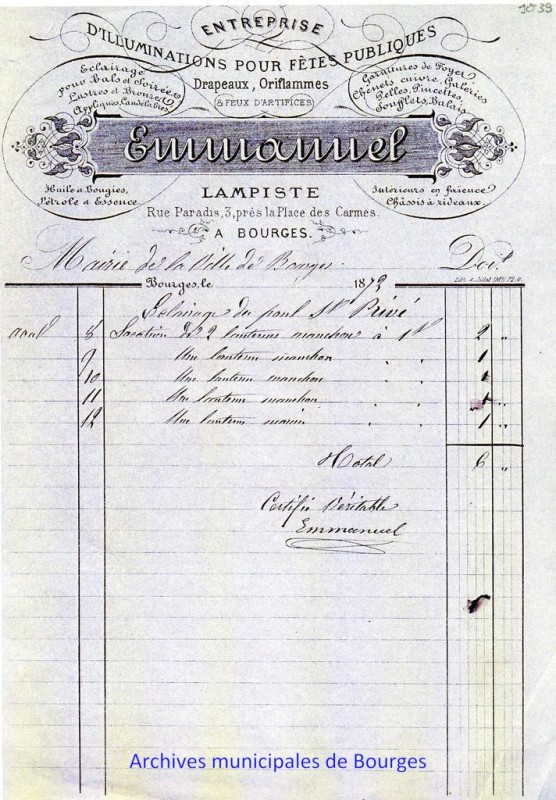 3039
ENTREPRISE
D'ILLUMINATIONS POUR FÊTES PUBLIQUES
Eclairage
pour Bals et Soirées
Lustres et Bronzes
Appliques, Candélabres
Drapeaux, Oriflammes
& FEUX D'ARTIFICES
Garnitures de Foyer
Chenets cuivre, Galeries
Pelles, Pincettes,
Soufflets, Balais
Emmanuel
Huile & Bougies,
Pétrole & Essence
LAMPISTE
Rue Paradis, 3, près la Place des Carmes.
A BOURGES.
Intérieurs en faïence
Châssis à rideaux.
Mairie de la Ville de Bourges Doit
Bourges, le 1873
Eclairage du pont St Privé
avril 8 Location de 2 lanternes manchon à 1f 2 "
9 Une lanterne manchon " " 1
10 Une lanterne manchon " " 1
11 Une lanterne manchon " " 1 "
12 Une lanterne " " 1 "
Total 6 "
Certifié Véritable
Emmanuel
Archives municipales de Bourges